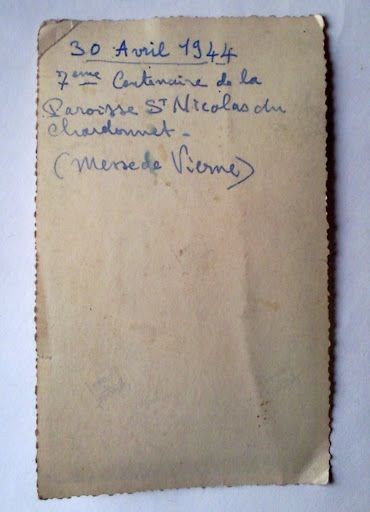 30 Avril 1944
7ème Centenaire de la
Paroisse St Nicolas du
Chardonnet -
(Messe de Vierne)